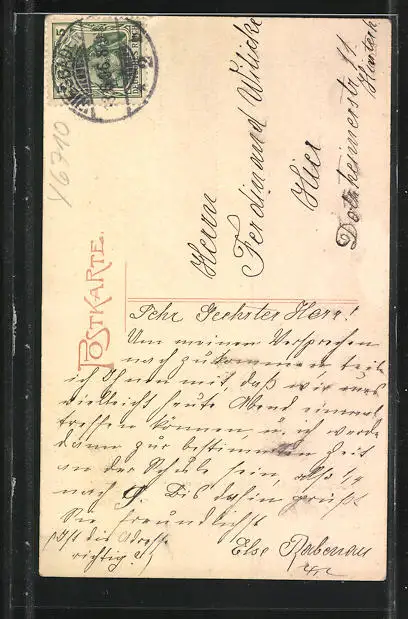 5
WIESBADEN
2
DEUTSCHES REICH
Y6710
POSTKARTE.
Herrn
Ferdinand Wilicke
Hier
Dotzheimerstr. 11.
Hinterh.
Sehr Geehrter Herr!
Um meinem Versprechen
nach zu kommen, teile
ich Ihnen mit, daß wir uns
vielleicht heute Abend einmal
treffen können, u. ich werde
dann zur bestimmten Zeit
an der Schule sein, also 1/4
nach 9. Bis dahin grüßt
Sie freundlichst
Else Rabenau
(Ist die Adresse
richtig?)